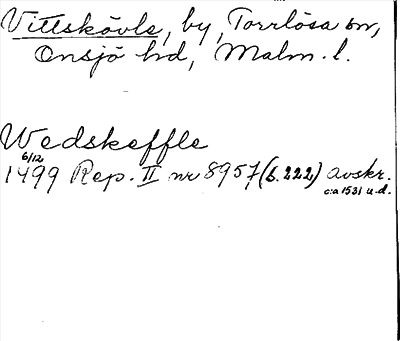 Vittskövle, by, Torrlösa sn,
Onsjö hd, Malm. l.
Wedskeffle
6/12
1499 Rep. II nr 8957 (s. 222) avskr.
c:a 1531 u.d.